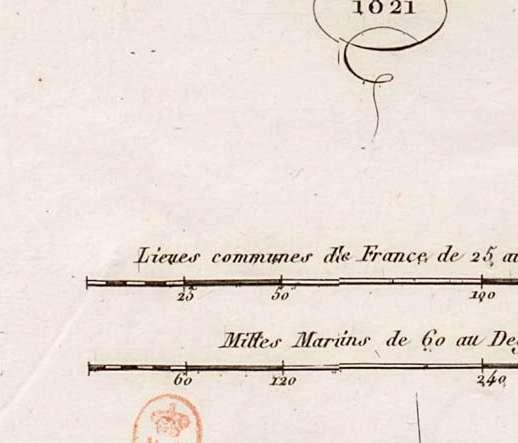 1821
Lieues communes de France, de 25 au
25 50 100
Milles Marins de 60 au Deg
60 120 240